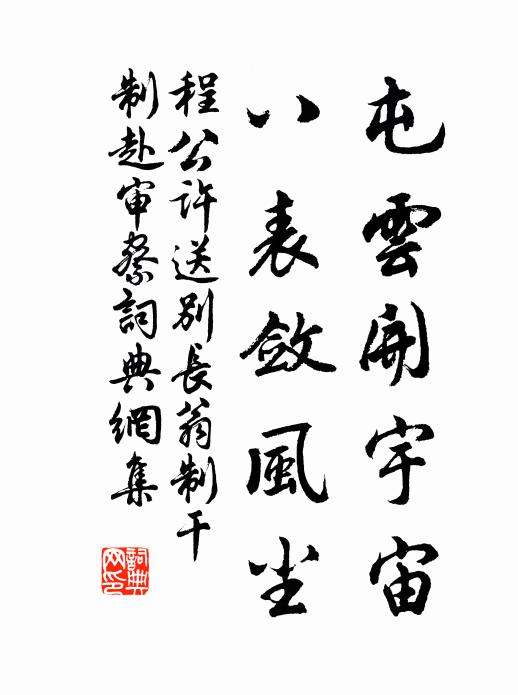 屯雲開宇宙
八表斂風尘
程公許送別長翁制干
制赴审察詞典網集
詞典网印